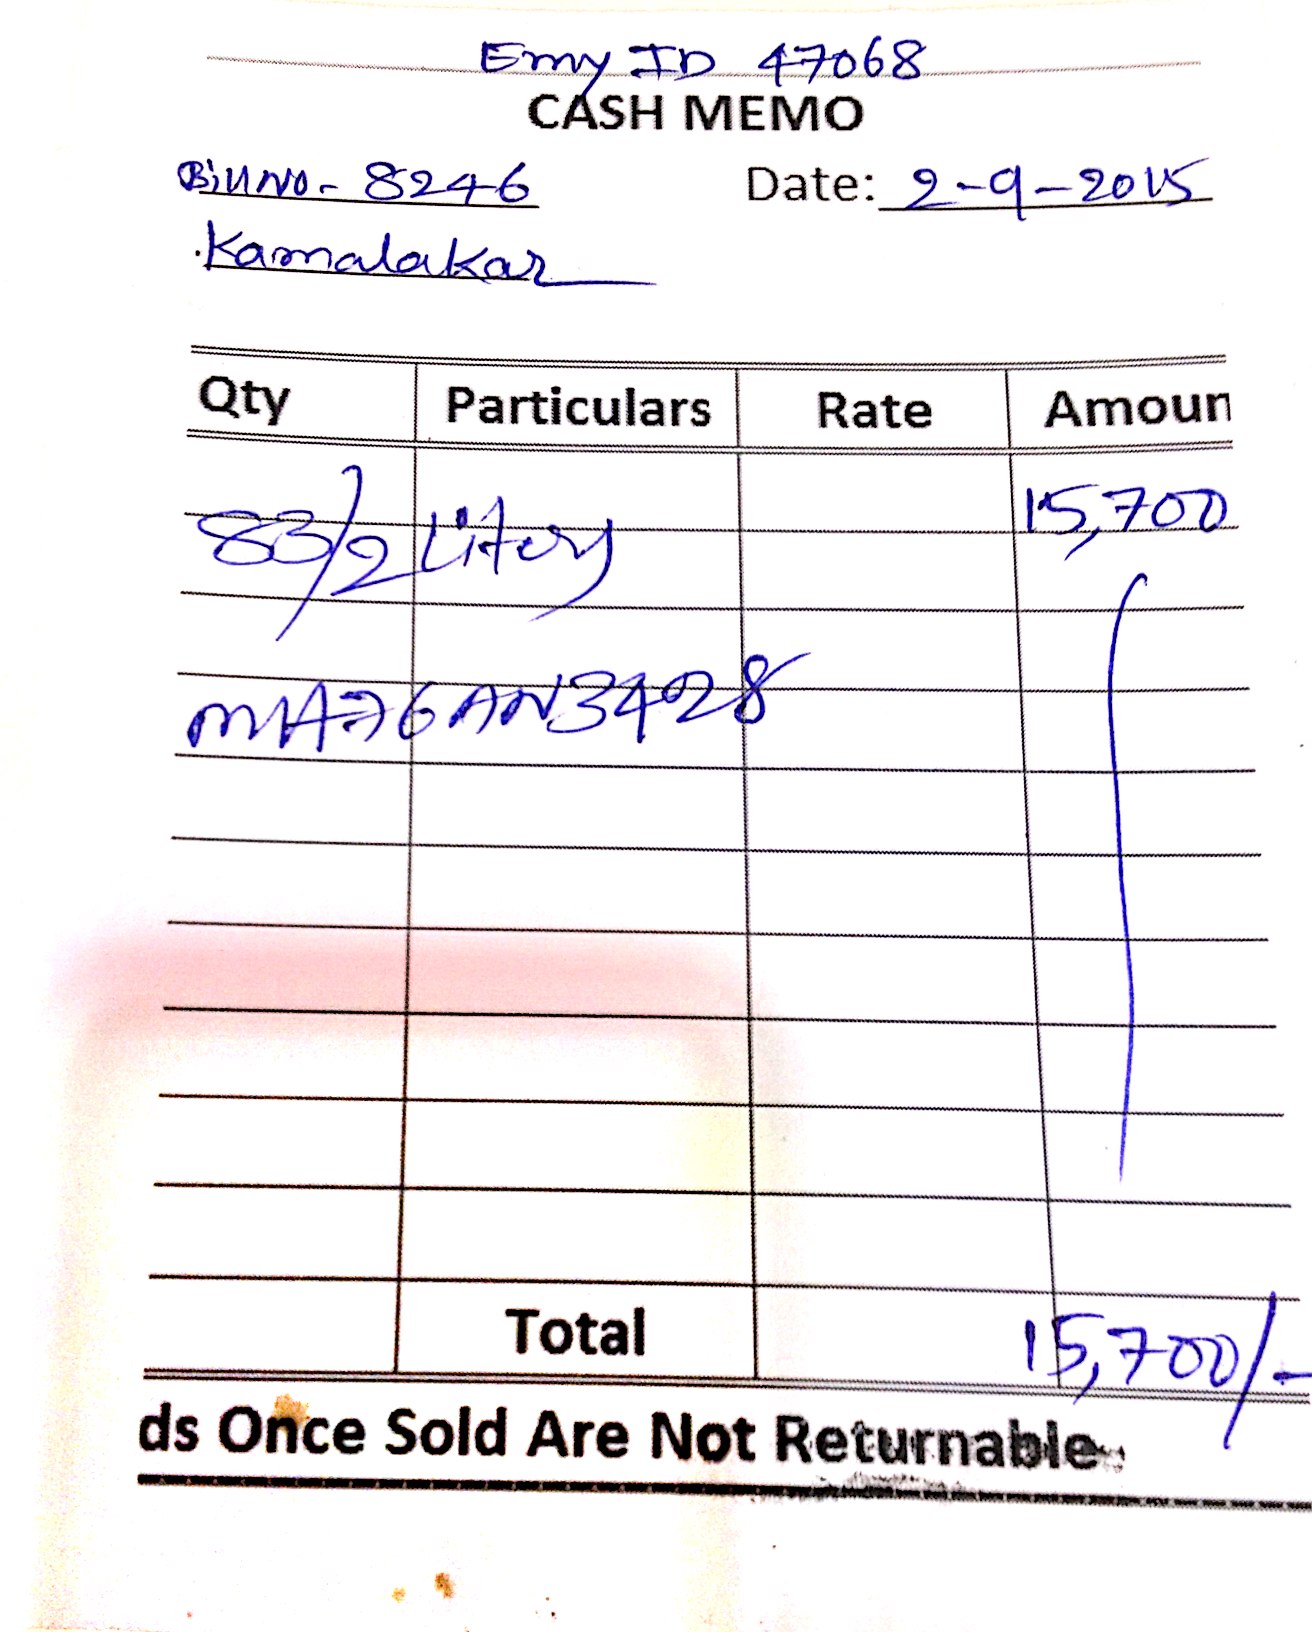 Emy ID 47068
CASH MEMO
Bill No - 8246 Date: 2-9-2015
Kamalakar
Qty Particulars Rate Amoun
83/2 Liters 15,700
MA76AN3428
Total 15,700/-
ds Once Sold Are Not Returnable